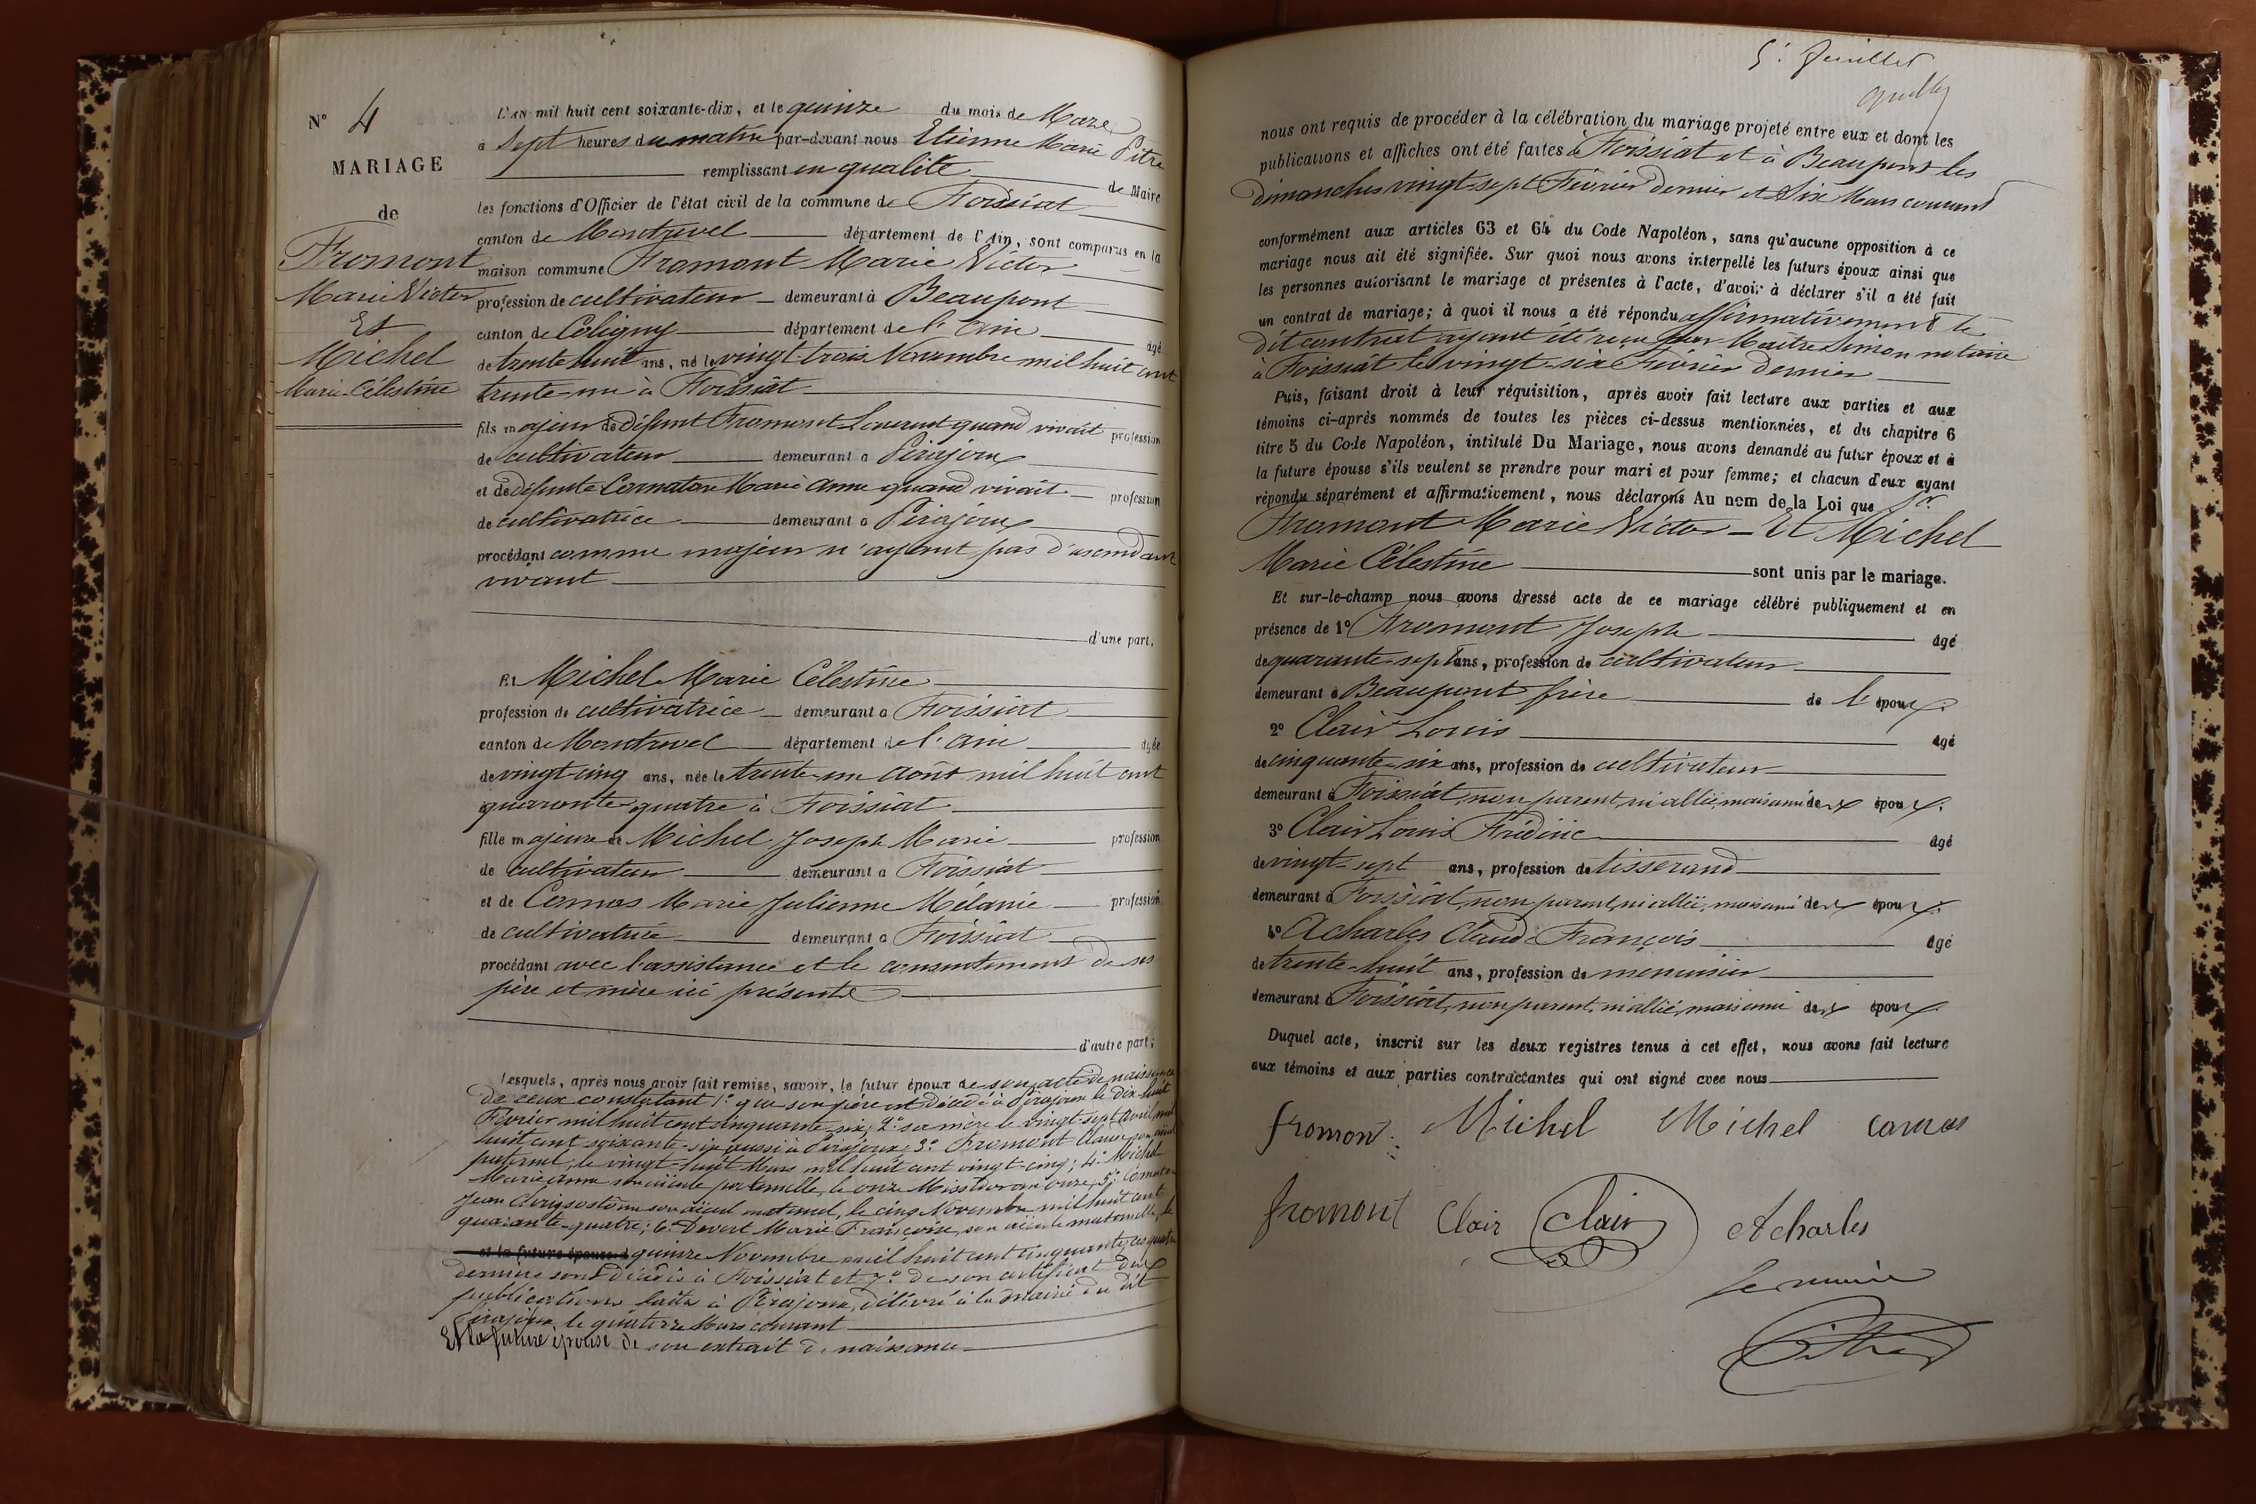 N° 4
MARIAGE
de
Fromont
Marie Victor
Et
Michel
Marie Célestine
L'AN mil huit cent soixante-dix, et le quinze du mois de Mars
à sept heures du matin par-devant nous Etienne Marie Pitre
remplissant en qualité de Maire
les fonctions d'Officier de l'état civil de la commune de Foissiat
canton de Montrevel département de l'Ain, sont comparus en la
maison commune Fromont Marie Victor
profession de cultivateur demeurant à Beaupont
canton de Coligny département de l'Ain âgé
de trente huit ans, né le vingt trois Novembre mil huit cent
trente-un à Foissiat
fils majeur de défunt Fromont Laurent quand vivait profession
de cultivateur demeurant à Pirajoux
et de défunte Cornaton Marie Anne quand vivait profession
de cultivatrice demeurant à Pirajoux
procédant comme majeur n'ayant pas d'ascendant
vivant
d'une part.
Et Michel Marie Célestine
profession de cultivatrice demeurant à Foissiat
canton de Montrevel département de l'Ain âgée
de vingt-cinq ans, née le trente-un août mil huit cent
quarante-quatre à Foissiat
fille majeure de Michel Joseph Marie profession
de cultivateur demeurant à Foissiat
et de Comas Marie Julienne Mélanie profession
de cultivatrice demeurant à Foissiat
procédant avec l'assistance et le consentement de ses
père et mère ici présents
d'autre part;
Lesquels, après nous avoir fait remise, savoir, le futur époux de son acte de naissance
de ceux constatant 1° que son père est décédé à Pirajoux le dix-huit
Février mil huit cent cinquante-six; 2° sa mère le vingt-sept avril mil
huit cent soixante-six aussi à Pirajoux; 3° Fromont Claude son aïeul
paternel, le vingt-huit Mars mil huit cent vingt-cinq; 4° Michel
Marie Anne son aïeule paternelle, le onze Messidor an onze; 5° Cornaton
Jean Chrysostôme son aïeul maternel, le cinq Novembre mil huit cent
quarante-quatre; 6° Devert Marie Françoise, son aïeule maternelle, le
et la future épouse d quinze Novembre mil huit cent cinquante, ces quatre
derniers sont décédés à Foissiat et 7° de son certificat des
publications faites à Pirajoux, délivré à la mairie du dit
Pirajoux le quatorze Mars courant
Et la future épouse de son extrait de naissance
5e feuillet
nous ont requis de procéder à la célébration du mariage projeté entre eux et dont les
publications et affiches ont été faites à Foissiat et à Beaupont les
dimanches vingt-sept Février dernier et six Mars courant
conformément aux articles 63 et 64 du Code Napoléon, sans qu'aucune opposition à ce
mariage nous ait été signifiée. Sur quoi nous avons interpellé les futurs époux ainsi que
les personnes autorisant le mariage et présentes à l'acte, d'avoir à déclarer s'il a été fait
un contrat de mariage; à quoi il nous a été répondu affirmativement le
dit contrat ayant été reçu par Maître Simon notaire
à Foissiat le vingt-six Février dernier
Puis, faisant droit à leur réquisition, après avoir fait lecture aux parties et aux
témoins ci-après nommés de toutes les pièces ci-dessus mentionnées, et du chapitre 6
titre 5 du Code Napoléon, intitulé Du Mariage, nous avons demandé au futur époux et à
la future épouse s'ils veulent se prendre pour mari et pour femme; et chacun d'eux ayant
répondu séparément et affirmativement, nous déclarons Au nom de la Loi que
Fromont Marie Victor Et Michel
Marie Célestine sont unis par le mariage.
Et sur-le-champ nous avons dressé acte de ce mariage célébré publiquement et en
présence de 1° Fromont Joseph âgé
de quarante-sept ans, profession de cultivateur
demeurant à Beaupont frère de l' époux.
2° Clair Louis âgé
de cinquante-six ans, profession de cultivateur
demeurant à Foissiat, non parent, ni allié, mais ami des époux.
3° Clair Louis Frédéric âgé
de vingt-sept ans, profession de tisserand
demeurant à Foissiat, non parent, ni allié, mais ami des époux.
4° Acharles Claude François âgé
de trente-huit ans, profession de menuisier
demeurant à Foissiat, non parent, ni allié, mais ami des époux.
Duquel acte, inscrit sur les deux registres tenus à cet effet, nous avons fait lecture
aux témoins et aux parties contractantes qui ont signé avec nous
fromont Michel Michel comas
fromont Clair Clair Acharles
Le maire
Pitre